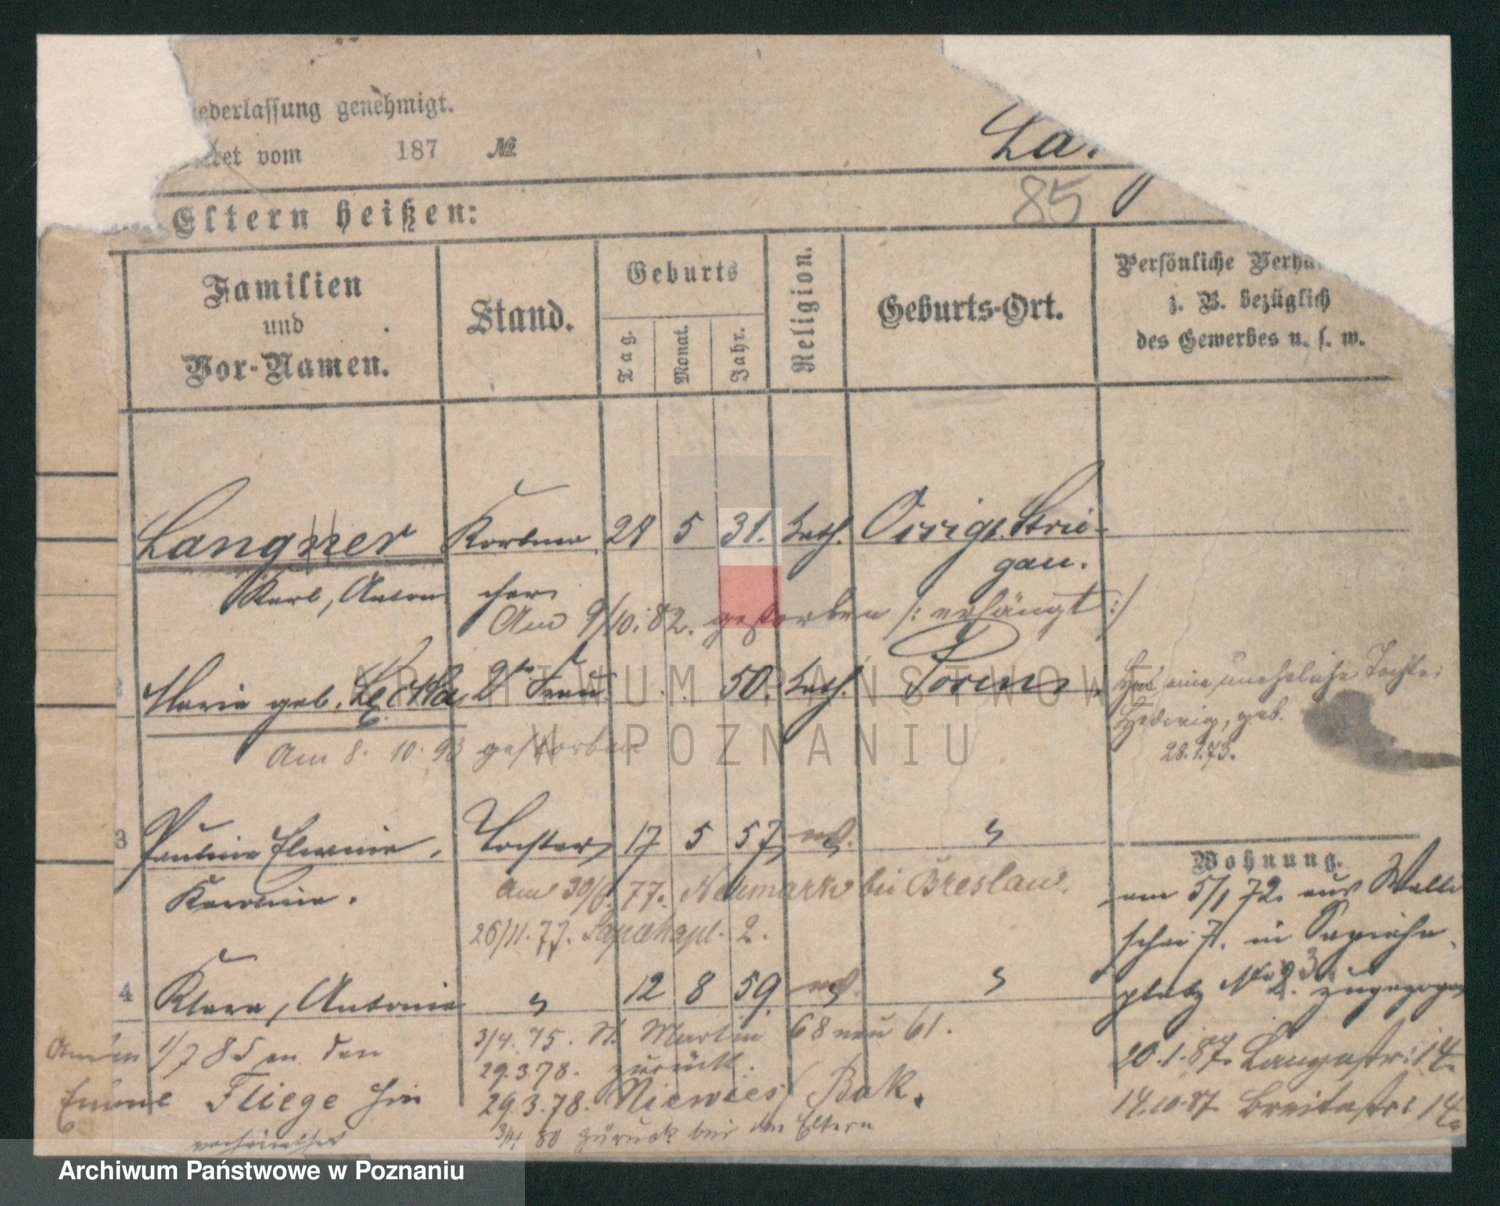 ederlassung genehmigt.
tet vom 187 №
La
85
Eltern heißen:
Familien
und
Vor-Namen.
Stand.
Geburts
Tag.
Monat.
Jahr.
Religion.
Geburts-Ort.
Persönliche Verhä
z. B. bezüglich
des Gewerbes u. s. w.
Langner Korbma 28 5 31. kath. Ossig Strie-
gau.
Karl, Anton cher
Am 9/10.82. gestorben /: erhängt :/
2 Marie geb. 2te Frau 50. kath. Posen
Hat eine uneheliche Tochter
Hedwig, geb.
28.1.73.
Am 8. 10. 93 gestorben
3 Pauline Tochter 17 5 57 "
Karoline.
Am 30/6. 77. Neumark bei Breslau.
26/11.77. 2.
Wohnung.
am 5/1 72. aus Walli
schei 7. in Sapieha
platz No 3. zugezogen
4 Klara, Antonie " 12 8 59. "
3/4. 75. St. Martin 68 neu 61.
1/7 85 an den
29.3.78. zurück.
Fliege hier
29.3.78. Bak.
80 zurück bei den Eltern
verheirathet
20.1.87. Langestr: 14.
14.10.87. Breitestr: 14.
ARCHIWUM PAŃSTWOWE
W POZNANIU
Archiwum Państwowe w Poznaniu